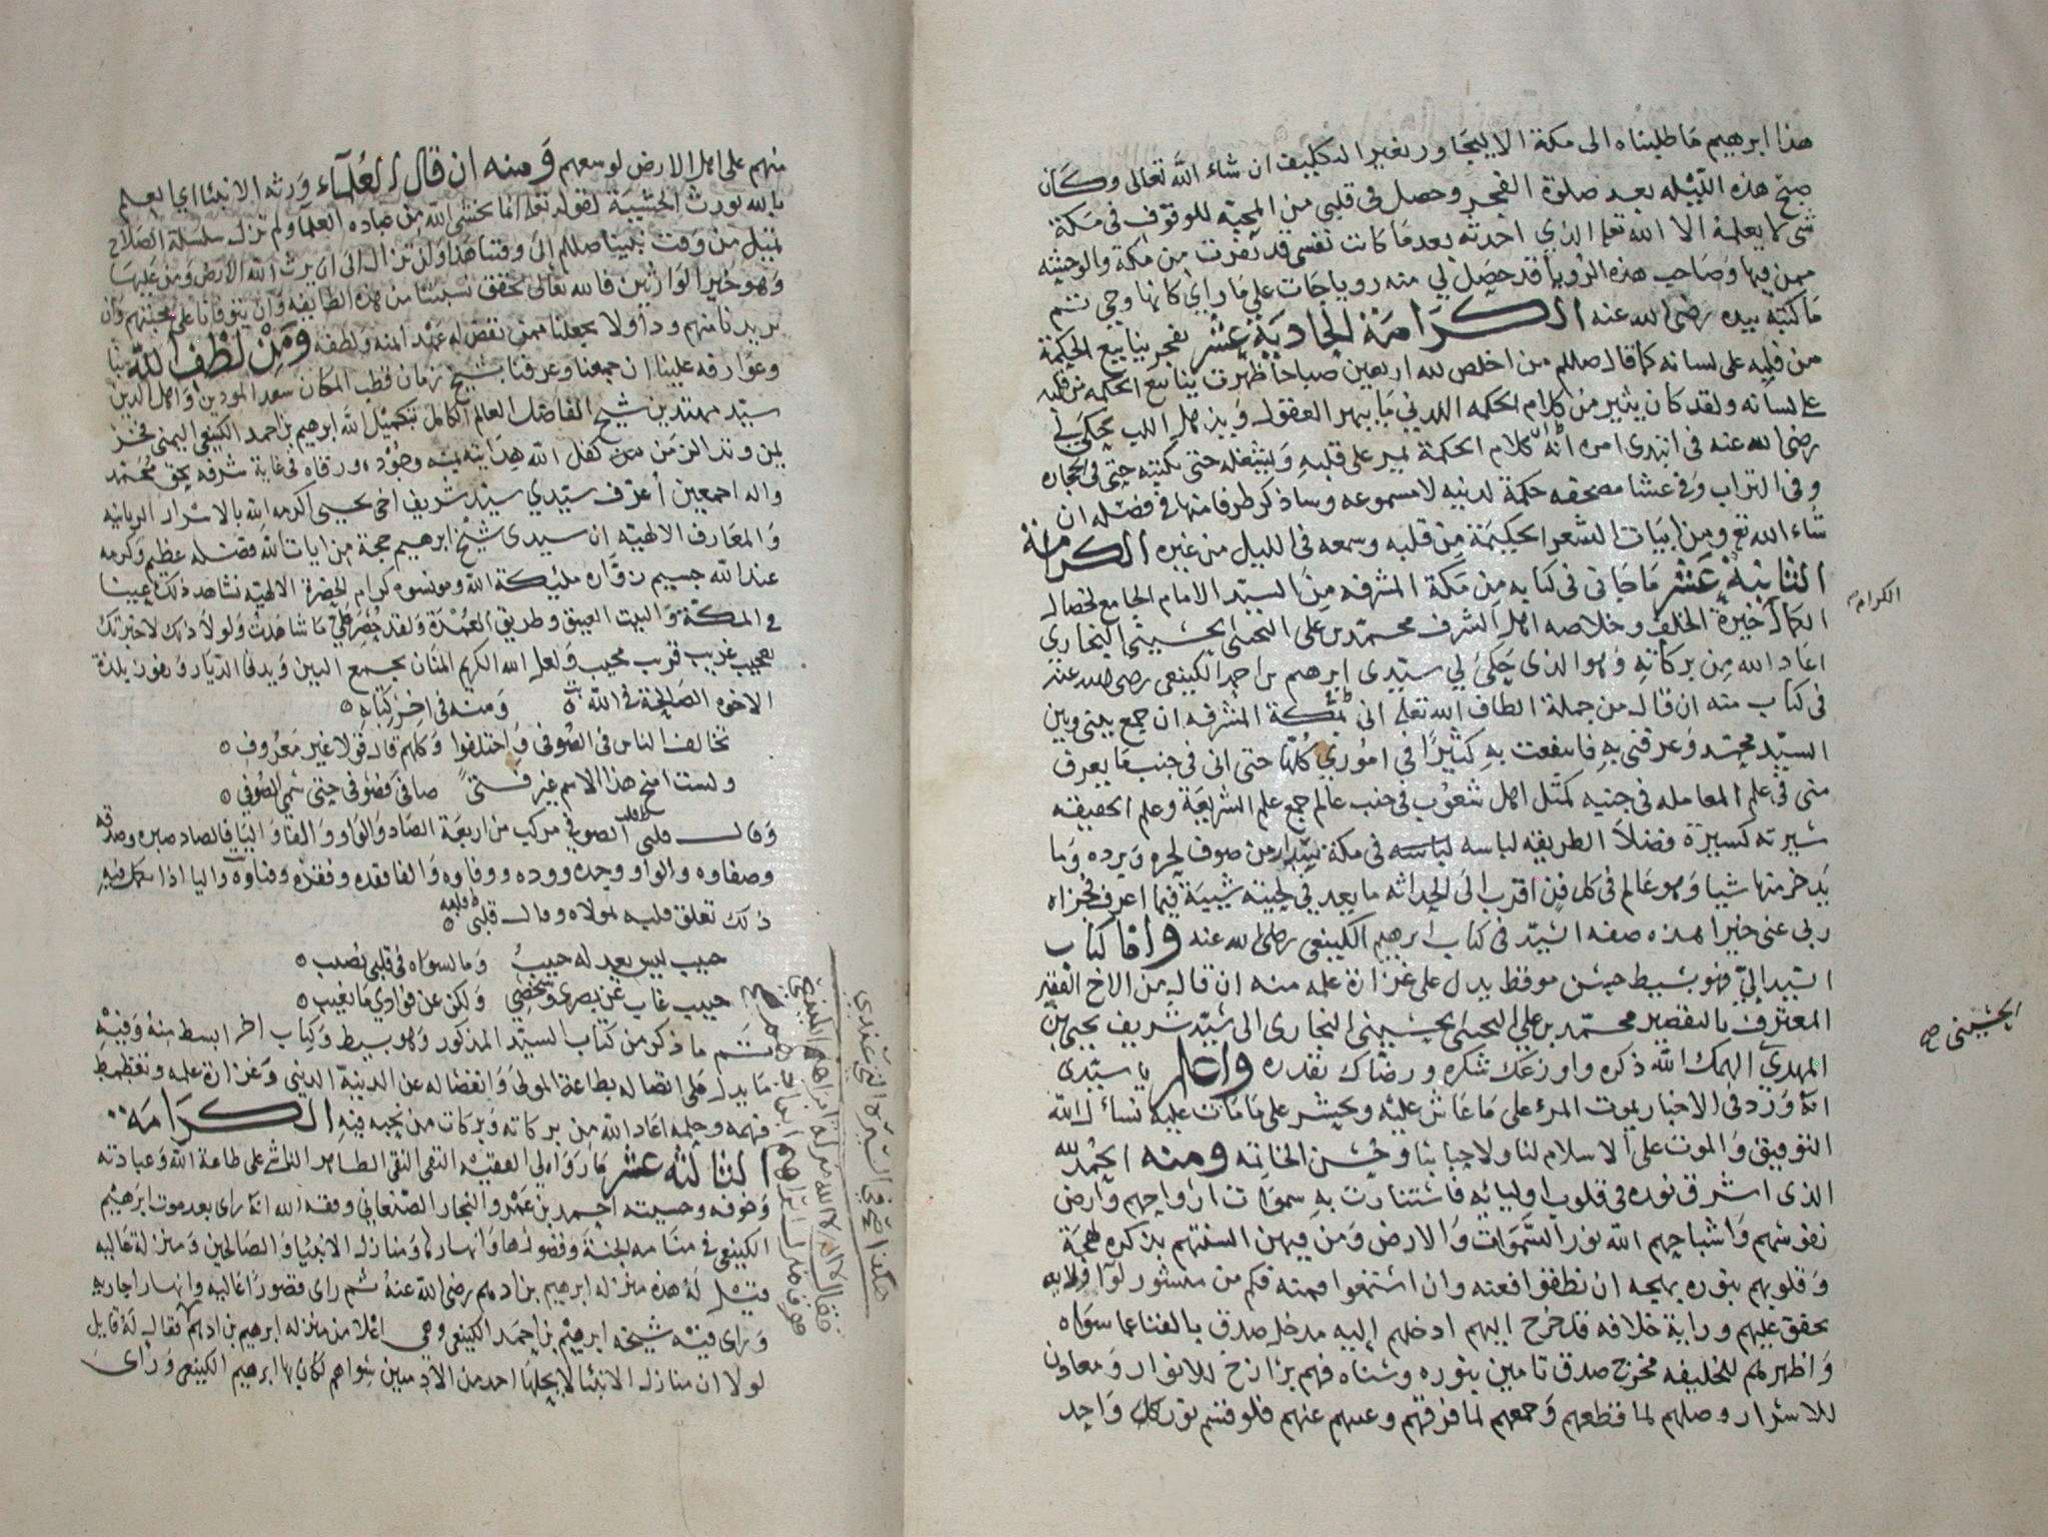 هذا ابرهيم ما طلبناه الى مكة الا ليجاور بغير الدكليف ان شاء الله تعالى وكان
صبح هذه الليله بعد صلوة الفجر وحصل في قلبي من المحبة للوقوف في مكة
شي لا يعلمه الا الله تعلى الذي احدثه بعد ما كانت نفسي قد نفرت من مكة والوحشه
ممن فيها وصاحب هذه الرويا قد حصل لي منه رويا جات على ما راى كانها وحي تتم
ما كتبه بيده رضي الله عنه الكرامة الحادية عشر تفجر ينابيع الحكمة
من قلبه على لسانه كما قال صللم من اخلص لله اربعين صباحا ظهرت ينابيع الحكمه من قلبه
على لسانه ولقد كان يثير من كلام الحكمه اللدني ما يبهر العقول ويذهل اللب يحكى لي
رضي الله عنه في ابتدى امره انه كلام الحكمة يمر على قلبه ويشغله حتى يكتبه حتى في الحجاره
وفي التراب وفي عشا مصحفه حكمة لدنيه لا مسموعه وساذكر طرفا منها في فضله ان
شاء الله تع ومن ابيات الشعر الحكيمة من قلبه وسمعه في الليل من غيره الكرامة
الثانية عشر ما جاني في كتابه من مكة المشرفه من السيد الامام الجامع لخصال
الكمال خيرة الخلف وخلاصه اهل الشرف محمد بن علي التجيبي الحسيني البخاري
اعاد الله من بركاته وهو الذي حكى لي سيدي ابرهيم بن احمد الكينعي رضي الله عنه
في كتاب منه ان قال من جملة الطاف الله تعلى اني بمكة المشرفه ان جمع بيني وبين
السيد محمد وعرفني به فانتفعت به كثيرا في اموري كلها حتى اني في جنب ما يعرف
مني في علم المعامله في جنبه كمثل اهل شعوب في جنب عالم جمع علم الشريعة وعلم الحقيقه
سيرته كسيرة فضلا الطريقه لباسه لباسه في مكة من صوف لحره وبرده وما
يدخر منها شيا وهو عالم في كل فن اقرب الى الحداثه ما يعد في لحيته شيبة فيما اعرف فجزاه
ربي عني خيرا هذه صفه السيد في كتاب ابرهيم الكينعي رضي الله عنه واما كتاب
السيد الي فهو بسيط حسن موقظ يدل على غزارة علمه منه ان قال من الاخ الفقير
المعترف بالتقصير محمد بن علي التجيبي الحسيني البخاري الى سيد شريف يحيى بن
المهدي الهمك الله ذكره واوزعك شكره ورضاك بقدره واعلم يا سيدي
انه ورد في الاخبار يموت المرء على ما عاش عليه ويحشر على ما مات عليه نسأل الله
التوفيق والموت على الاسلام لنا ولاحبابنا وحسن الخاتمه ومنه الحمد لله
الذي اشرق نوره في قلوب اوليائه فاستنارت به سموات ارواحهم وارض
نفوسهم واشباحهم الله نور السموات والارض ومن فيهن السنتهم بذكره لهجة
وقلوبهم بنوره بهجه ان نطقوا فعنه وان استمعوا فمنه فكم من منشور لوآ ولايه
تحقق عليهم وراية خلافه قد خرج اليهم ادخلهم اليه مدخل صدق بالفنا عما سواه
واظهرهم للخليقه مخرج صدق تامين بنوره وسناه فهم برازخ للانوار ومعادن
للاسرار وصلهم لما قطعهم وجمعهم لما فرقهم وغيبهم عنهم فلو قسم نور كل واحد
الكرامه
الحسيني صح
منهم على اهل الارض لوسعهم ومنه ان قال العلمآء ورثه الانبئا اي العلم
بالله يورث الخشية لقوله تعلى انما يخشى الله من عباده العلما ولم تزل سلسلة الصلاح
من وقت نبينا صللم الى وقتنا هذا ولن تزال الى ان يرث الله الارض ومن عليها
وهو خير الوارثين فالله تعالى يحقق نسبتنا من هذه الطايفه وان يتوفانا على محبتهم وان
يزيدنا منهم ودا ولا يجعلنا ممن نقض له عهدا بمنه ولطفه ومن لطف الله بنا
وعوارفه علينا ان جمعنا وعرفنا بشيخ زمان قطب المكان سعد الموحدين واهل الدين
سيد مهتدين شيخ الفاضل العالم الكامل بتكميل الله ابرهيم بن احمد الكينعي اليمني فخر
يمن وند الزمن كفل الله هدايته بمنه وجوده ورقاه في غاية شرفه بحق محمد
واله اجمعين اعترف سيدي سيد شريف اخي يحيى اكرمه الله بالاسرار الربانيه
والمعارف الالهيه ان سيدي شيخ ابرهيم حجة من ايات لله فضله عظيم وكرمه
عند الله جسيم زواره مليكة الله ومونسوه كرام الحضرة الالهيه نشاهد ذلك عيانا
في المكة والبيت العتيق وطريق العمرة ولقد حضر على ما شاهدت ولولا ذلك لاخبرتك
بعجيب غريب قريب مجيب ولعل الله الكريم المنان يجمع البين ويدني الديار ونفوز بلذة
الاخوه الصالحة في الله ومنه في اخر كتابه ٥
تخالف الناس في الصوفي واختلفوا وكلهم قال قولا غير معروف ٥
ولست امنح هذا الاسم غير فتى صافى فصوفي حتى سمي الصوفي ٥
وقال قلبي الصوفي مركب من اربعة الصاد والواو والفا واليا فالصاد صبره وصدقه
وصفاوه والواو وجده ووده ووفاوه والفا فقده وفقره وفناوه واليا اذا كمل فيه
ذلك تعلق قلبه لمولاه وقال قلبي
حبيب ليس يعدله حبيب وما لسواه في قلبي نصيب ٥
حبيب غاب عن بصري وشخصي ولكن عن فوادي ما يغيب ٥
تتم ما ذكر من كتاب السيد المذكور وهو بسيط وكتاب اخر ابسط منه وفيه
ما يدل على اتصاله بطاعة المولى وانفصاله عن الدنية الدنيي وغزارة علمه
فهمه وحلمه اعاد الله من بركاته وبركات من يحبه فيه الكرامة
الثالثة عشر ما رواه لي الفقيه التقي النقي الطاهر الناشي على طاعة الله وعبادته
وخوفه وخشيته احمد بن عمرو النجار الصنعاني وفقه الله انه راى بعد موت ابرهيم
الكينعي في منامه الجنة وقصورها وانهارها ومنازل الانبيا والصالحين ومنزلة عاليه
فقيل له هذه منزله ابرهيم بن ادهم رضي الله عنه ثم راى قصورا عاليه وانهارا جاريه
وراى فيه شيخه ابرهيم بن احمد الكينعي وهي اعلا من منزله ابرهيم بن ادهم فقال له قايل
لولا ان منازل الانبئا لا يحلها احد من الادميين سواهم لكان بها ابرهيم الكينعي وراى
هكذا صح في السيرة التي عندي